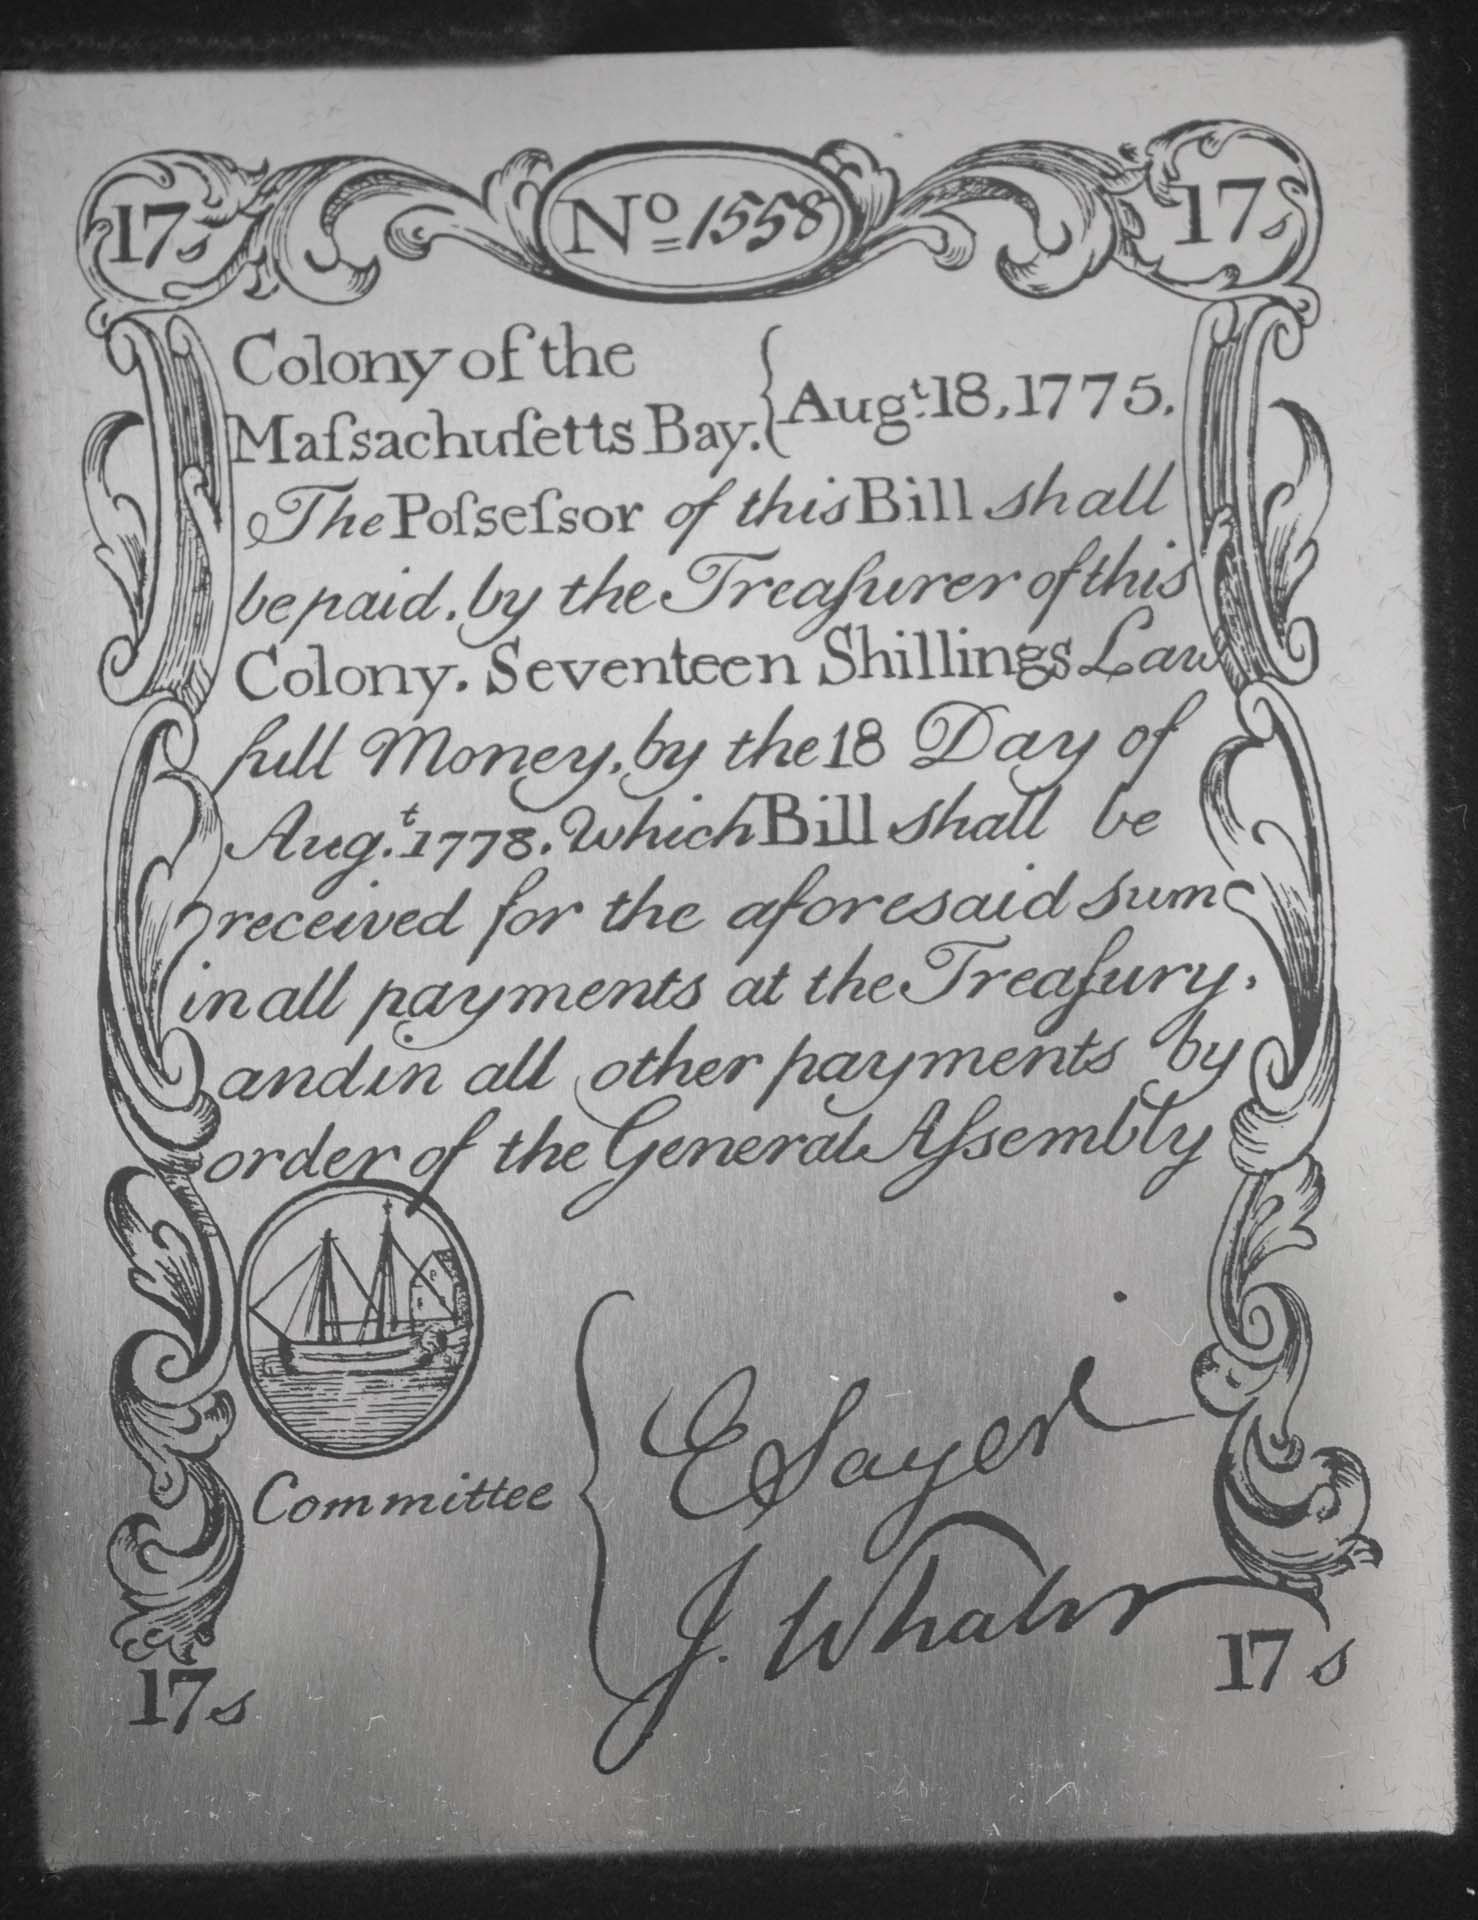 17s Nº 1558 17s
Colony of the
Maſsachuſetts Bay. { Augᵗ. 18, 1775.
The Poſseſsor of this Bill shall
be paid. by the Treaſurer of this
Colony. Seventeen Shillings Law
full Money, by the 18 Day of
Augᵗ. 1778. Which Bill shall be
received for the aforesaid sum
in all payments at the Treaſury,
and in all other payments by
order of the General Aſsembly
Committee
E Sayer
J.
17s 17s